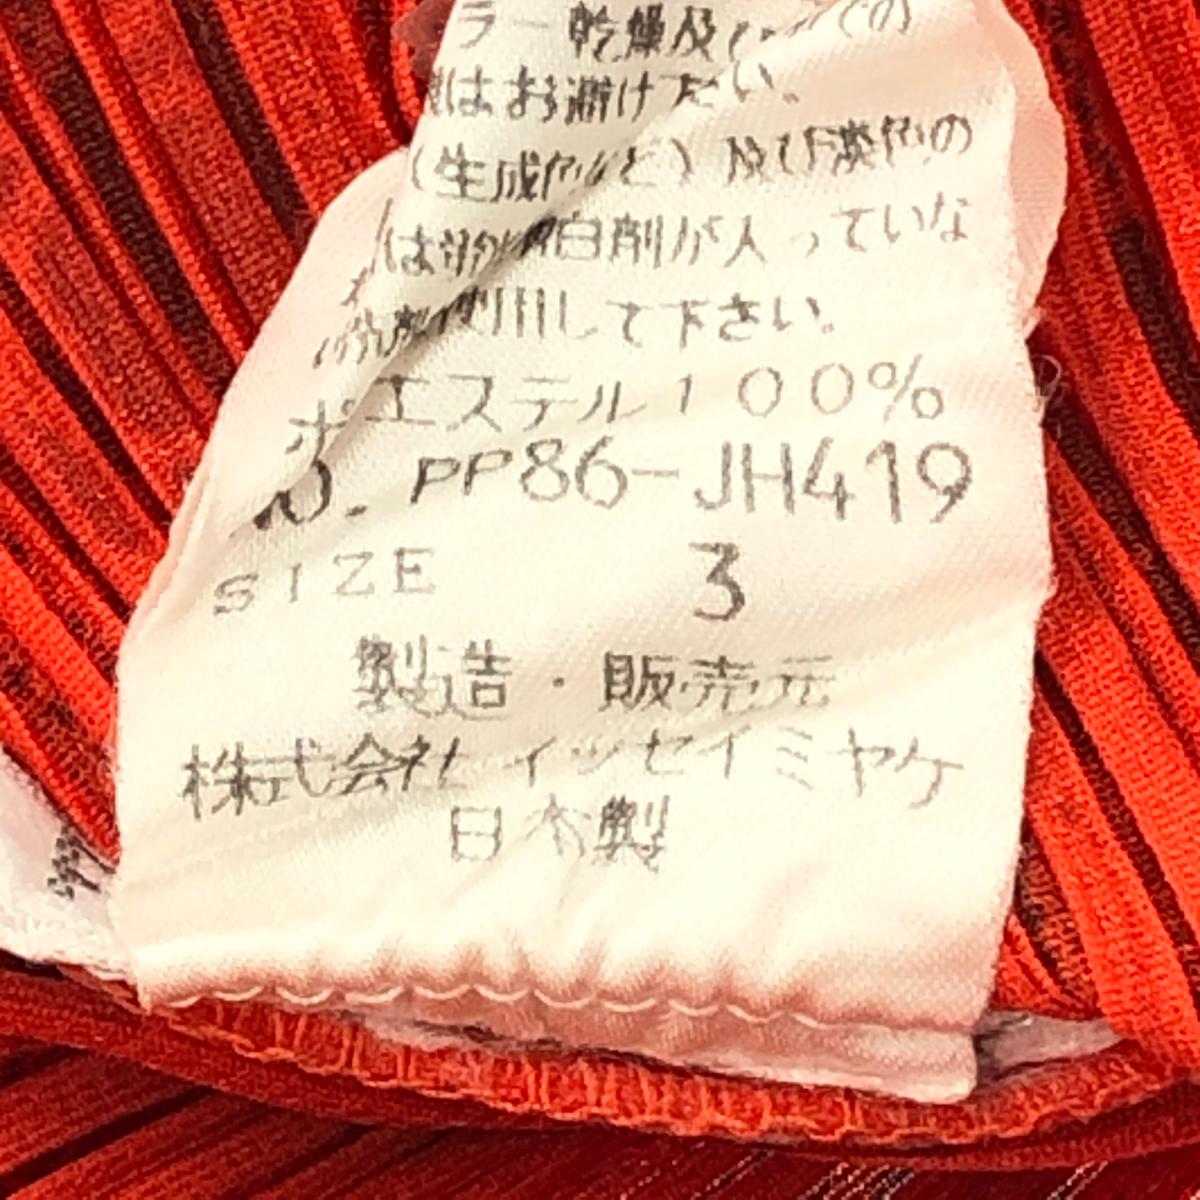 ラー乾燥及び
はお避け下さい。
(生成色など)及び淡色の
は蛍光増白剤が入っていな
い洗剤を使用して下さい。
ポリエステル100%
NO. PP86-JH419
SIZE 3
製造・販売元
株式会社 イッセイミヤケ
日本製